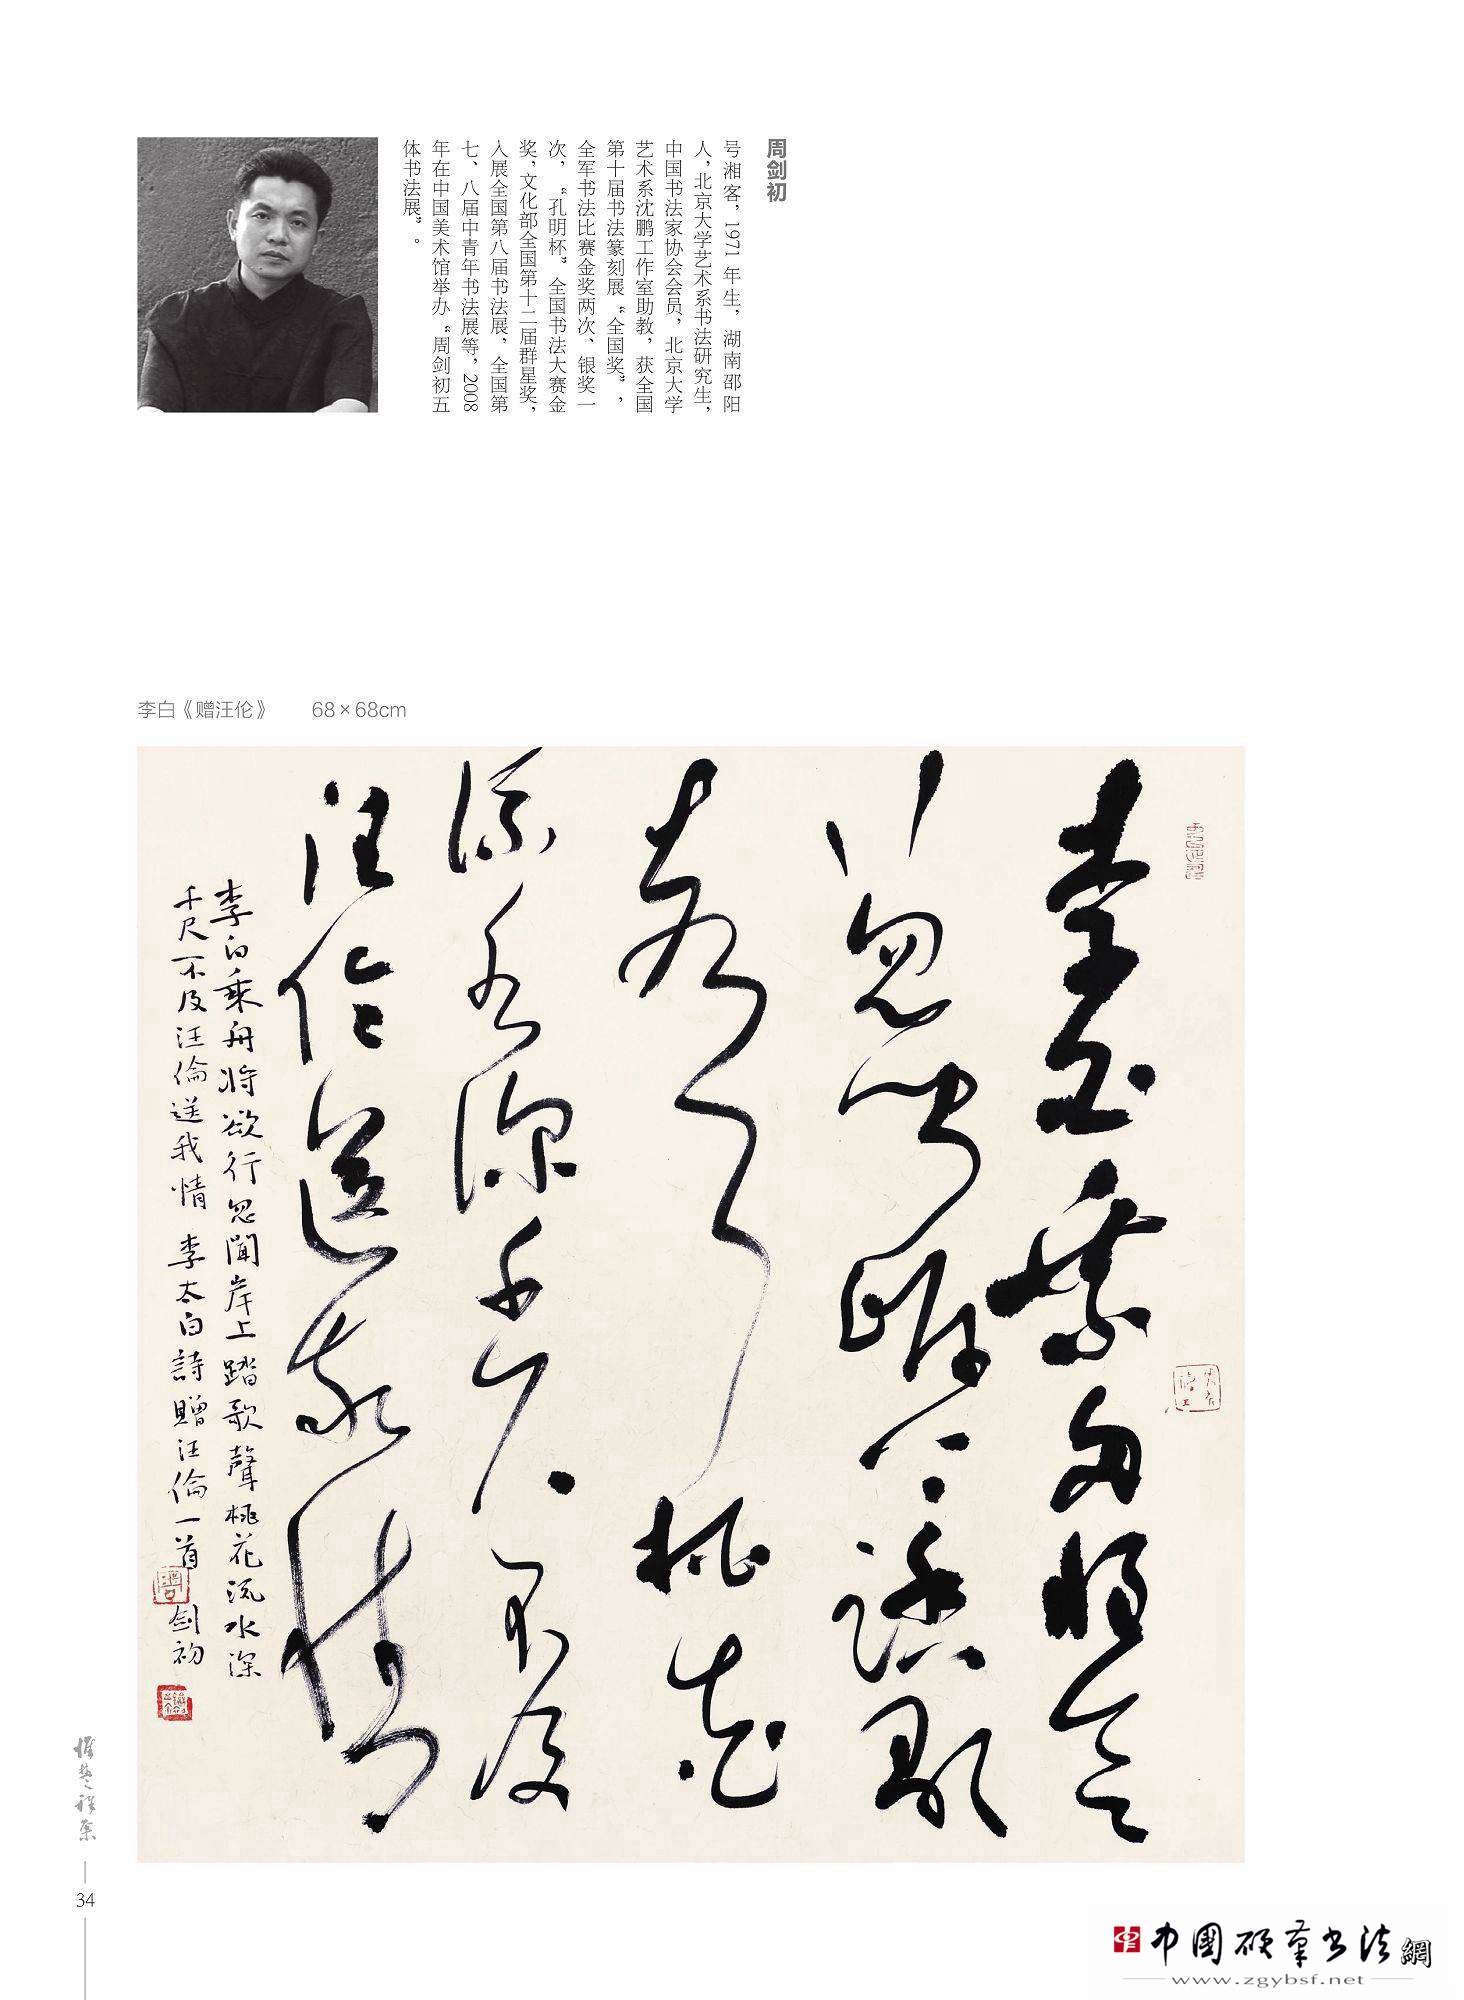 周剑初
号湘客，1971年生，湖南邵阳
人，北京大学艺术系书法研究生，
中国书法家协会会员，北京大学
艺术系沈鹏工作室助教，获全国
第十届书法篆刻展“全国奖”，
全军书法比赛金奖两次、银奖一
次，“孔明杯”全国书法大赛金
奖，文化部全国第十二届群星奖，
入展全国第八届书法展，全国第
七、八届中青年书法展等，2008
年在中国美术馆举办“周剑初五
体书法展”。
李白《赠汪伦》 68×68cm
李白乘舟將欲
行忽聞岸上踏歌
聲桃花
流水深千尺不及
汪倫送我情
李白乘舟將欲行忽聞岸上踏歌聲桃花流水深
千尺不及汪倫送我情 李太白詩贈汪倫一首 劍初
34
中国硬笔书法網
www.zgybsf.net